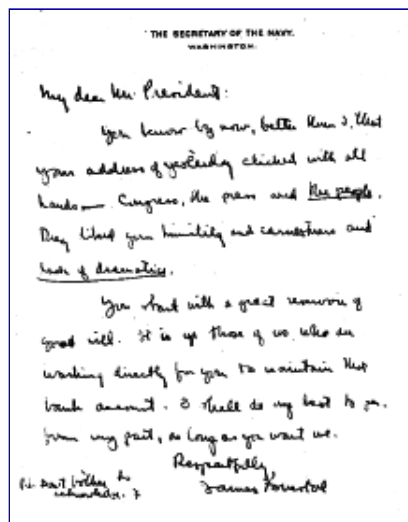 THE SECRETARY OF THE NAVY.
WASHINGTON.
My dear Mr. President:
You know by now, better than I, that
your address of yesterday clicked with all
hands — Congress, the press and the people.
They liked your humility and earnestness and
lack of dramatics.
You start with a great reservoir of
good will. It is up those of us who are
working directly for you to maintain that
bank account. I shall do my best to
my part, as long as you want me.
Respectfully,
James Forrestal
P.S. Don't bother to